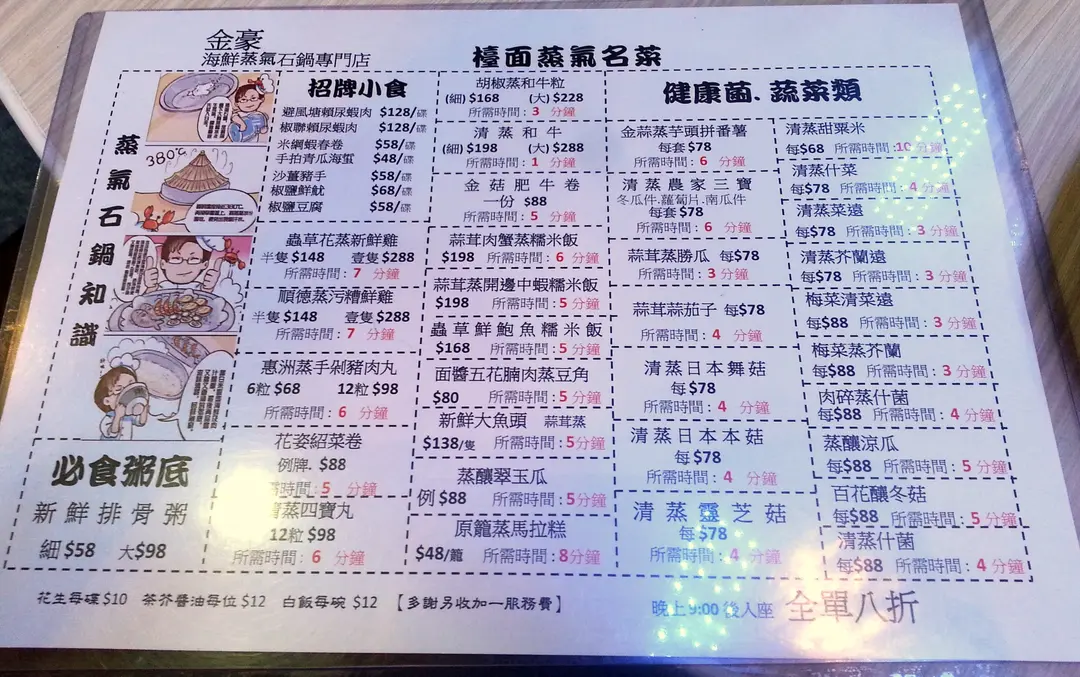 金豪
海鮮蒸氣石鍋專門店
檯面蒸氣名菜
蒸氣石鍋知識
380℃
招牌小食
避風塘賴尿蝦肉 $128/碟
椒聯賴尿蝦肉 $128/碟
米綱蝦春卷 $58/碟
手拍青瓜海蜇 $48/碟
沙薑豬手 $58/碟
椒鹽鮮魷 $68/碟
椒鹽豆腐 $58/碟
蟲草花蒸新鮮雞
半隻$148 壹隻$288
所需時間: 7 分鐘
順德蒸污糟鮮雞
半隻$148 壹隻$288
所需時間: 7 分鐘
惠洲蒸手剁豬肉丸
6粒$68 12粒$98
所需時間: 6 分鐘
花姿紹菜卷
例牌. $88
需時間: 5 分鐘
蒸四寶丸
12粒$98
所需時間: 6 分鐘
必食粥底
新鮮排骨粥
細$58 大$98
胡椒蒸和牛粒
(細) $168 (大) $228
所需時間: 3 分鐘
清蒸和牛
(細) $198 (大) $288
所需時間: 1 分鐘
金菇肥牛卷
一份 $88
所需時間: 5 分鐘
蒜茸肉蟹蒸糯米飯
$198 所需時間: 6 分鐘
蒜茸蒸開邊中蝦糯米飯
$198 所需時間: 5 分鐘
蟲草鮮鮑魚糯米飯
$168 所需時間: 5 分鐘
面醬五花腩肉蒸豆角
$80 所需時間: 5 分鐘
新鮮大魚頭 蒜茸蒸
$138/隻 所需時間: 5分鐘
蒸釀翠玉瓜
例 $88 所需時間: 5分鐘
原籠蒸馬拉糕
$48/籠 所需時間: 8分鐘
健康菌. 蔬菜類
金蒜蒸芋頭拼番薯
每套$78
所需時間: 6 分鐘
清蒸農家三寶
冬瓜件.蘿蔔片.南瓜件
每套$78
所需時間: 6 分鐘
蒜茸蒸勝瓜 每$78
所需時間: 3 分鐘
蒜茸蒜茄子 每$78
所需時間: 4 分鐘
清蒸日本舞菇
每$78
所需時間: 4 分鐘
清蒸日本本菇
每$78
所需時間: 4 分鐘
清蒸靈芝菇
每$78
所需時間: 4 分鐘
清蒸甜粟米
每$68 所需時間: 10 分鐘
清蒸什菜
每$78 所需時間: 4 分鐘
清蒸菜遠
每$78 所需時間: 3 分鐘
清蒸芥蘭遠
每$78 所需時間: 3 分鐘
梅菜清菜遠
每$88 所需時間: 3 分鐘
梅菜蒸芥蘭
每$88 所需時間: 3 分鐘
肉碎蒸什菌
每$88 所需時間: 4 分鐘
蒸釀涼瓜
每$88 所需時間: 5 分鐘
百花釀冬菇
每$88 所需時間: 5 分鐘
清蒸什菌
每$88 所需時間: 4 分鐘
花生每碟$10 茶芥醬油每位$12 白飯每碗 $12 【多謝另收加一服務費】
晚上9:00 後入座 全單八折